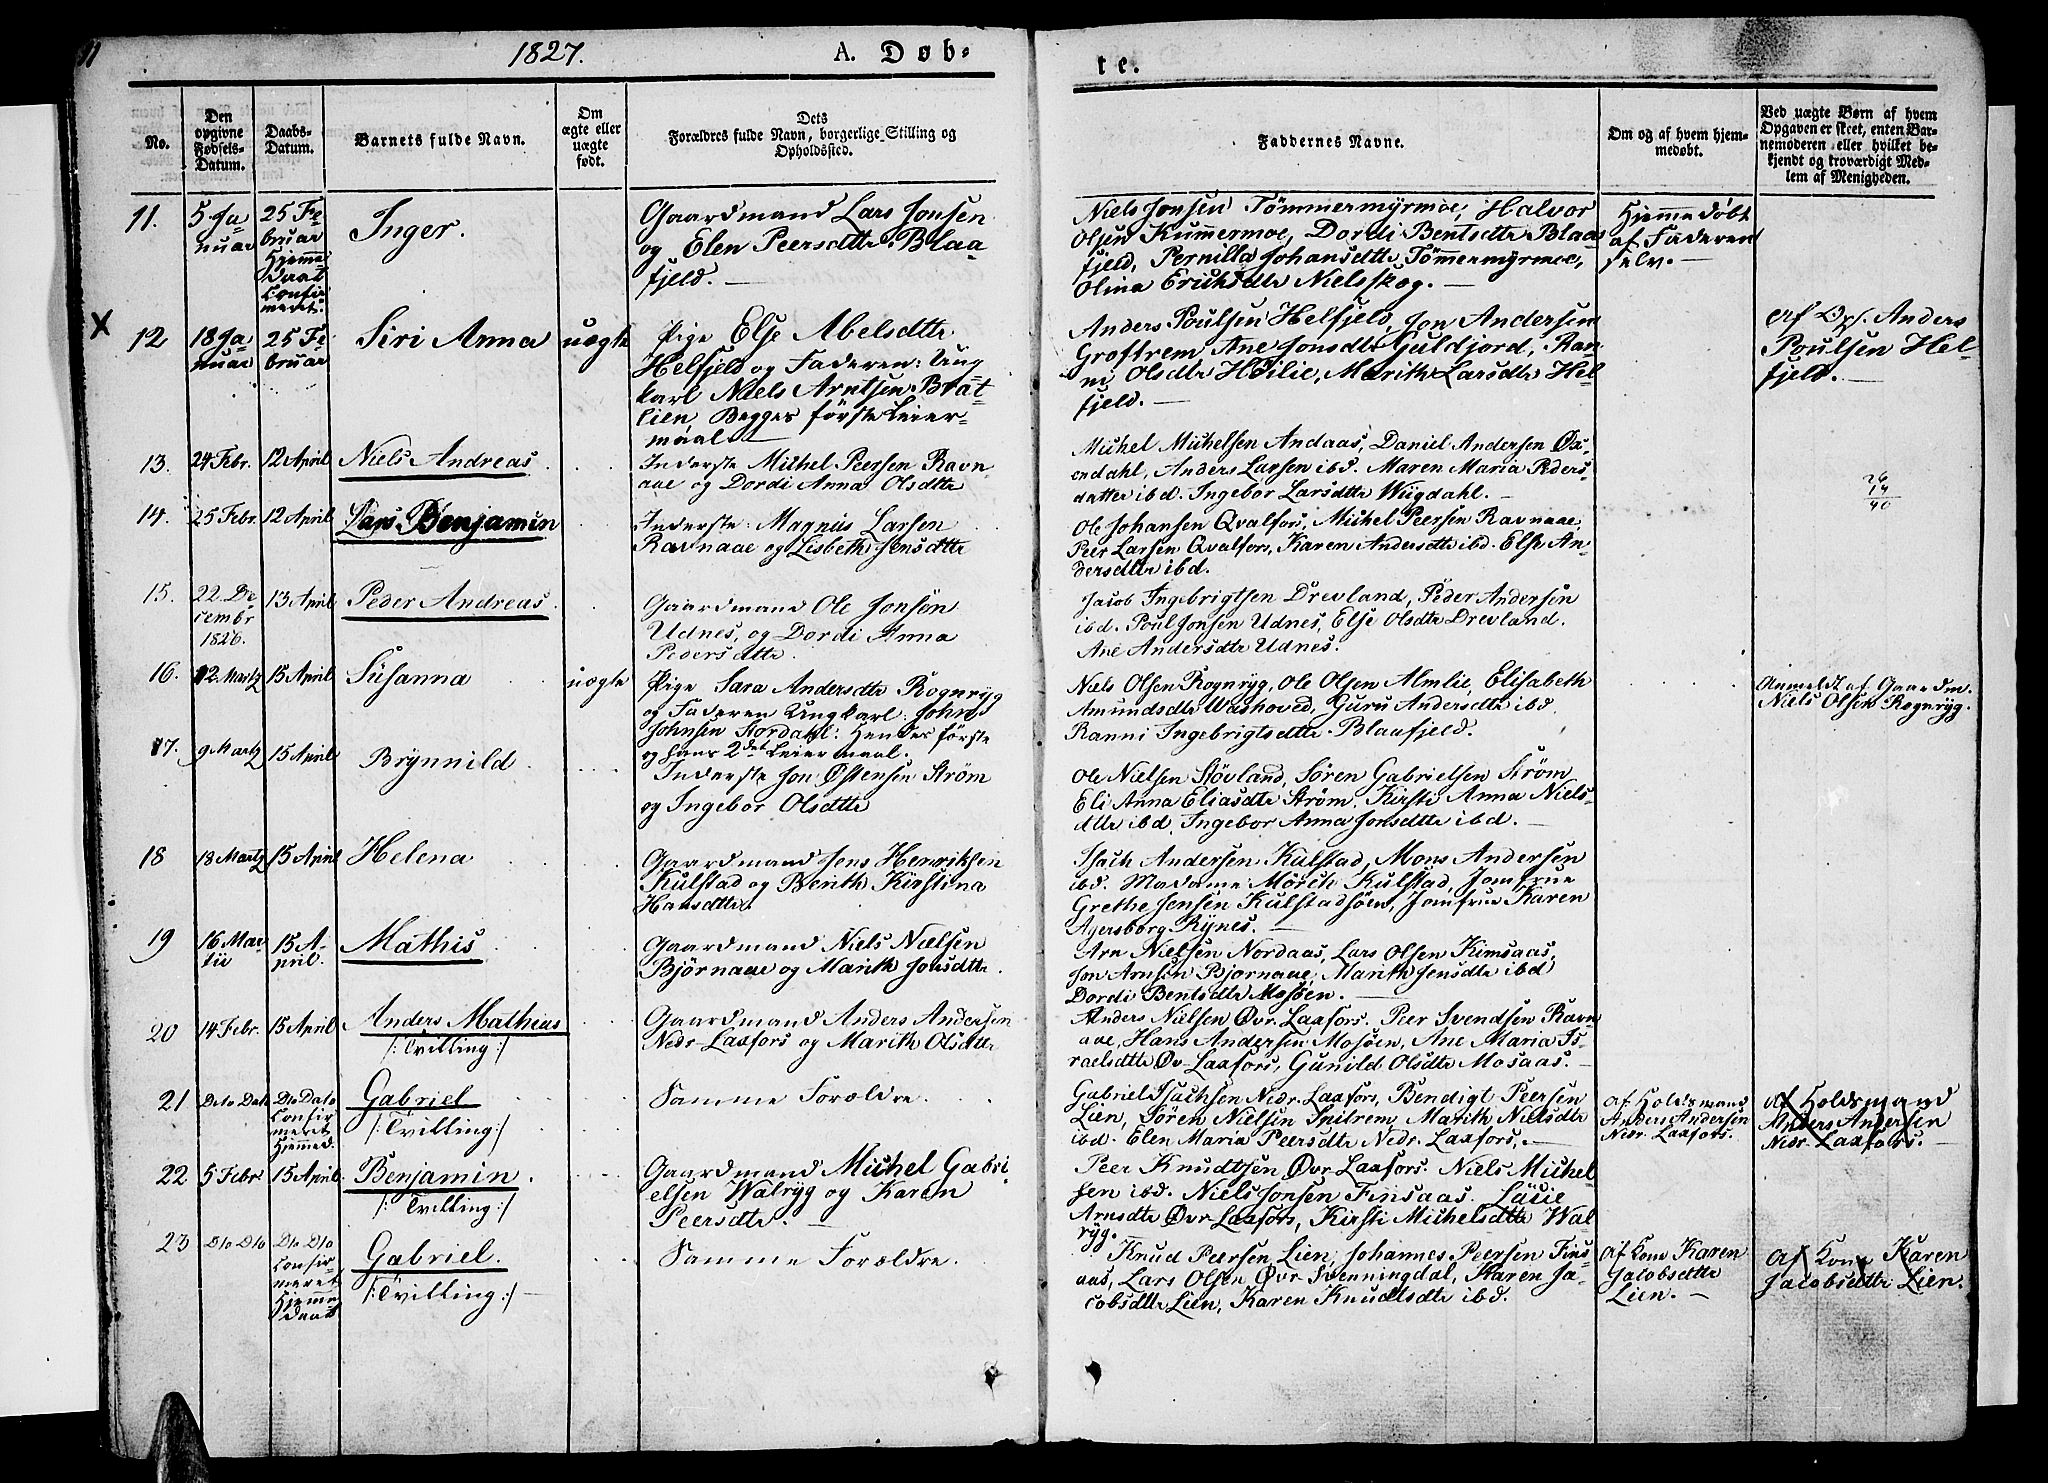 1827.
A. Døb-
te.
No.
Den
opgivne
Fødsels-
Datum.
Daabs-
Datum.
Barnets fulde Navn.
Om
ægte eller
uægte
født.
Dets
Forældres fulde Navn, borgerlige Stilling og
Opholdssted.
Faddernes Navne.
Om og af hvem hjem-
medøbt.
Ved uægte Børn af hvem
Opgaven er skeet, enten Bar-
nemoderen eller hvilket be-
kjendt og troværdigt Med-
lem af Menigheden.
11.
5 Ja
nuar
25 Fe-
bruar
Hjemme
Daab
Confir
meret.
Inger.
Gaardmand Lars Jonsen
og Elen Peersdttr Blaa-
fjeld. —
Niels Jonsen Tömmermyrmoe, Halvor
Olsen Kummermoe, Dordi Bentsdttr Blaa
fjeld, Pernilla Johansdttr Tömmermyrmoe,
Olina Erichsdttr Nielsskog. —
Hjemmedøbt
af Faderen
selv. —
X
12
18 Ja
nuar
25 Fe
bruar
Siri Anna
uægte
Pige Else Abelsdttr
Helfjeld og Faderen: Ung
karl Niels Arntsen Brat-
lien Begges første Leier-
maal. —
Anders Poulsen Helfjeld, Jon Andersen
Groftrem, Ane Jonsdttr Guldjord, Ran-
ni Olsdttr Høilie, Marith Larsdttr Hel
fjeld. —
Af Anders
Poulsen Hel-
fjeld. —
13.
24 Febr.
12 April
Niels Andreas
Inderste Michel Peersen Ravn-
aae og Dordi Anna Olsdttr
Michel Michelsen Andaas, Daniel Andersen Øx-
endahl, Anders Larsen ibd. Maren Maria Peders
datter ibd. Ingebor Larsdttr Wiigdahl. —
26
14
40
14.
25 Febr.
12 April
Lars Benjamin
Inderste: Magnus Larsen
Ravnaae og Lisbeth Jensdttr
Ole Johansen Qvalfors, Michel Peersen Ravnaae,
Peer Larsen Qvalfors, Karen Andersdttr ibd. Else An-
dersdttr ibd.
15.
22 De
cembr
1826.
13 April
Peder Andreas
Gaardmand Ole Jonsön
Udnes, og Dordi Anna
Pedersdttr.
Jacob Ingebrigtsen Drevland, Peder Andersen
ibd. Poul Jonsen Udnes, Else Olsdttr Drevland.
Ane Andersdttr Udnes.
16.
12 Martz
15 April
Susanna
uægte
Pige Sara Andersdttr Rognryg
og Faderen Ungkarl: John
Johnsen Stordahl: Hendes første
og hans 2det Leiermaal.
Niels Olsen Rognryg, Ole Olsen Almlie, Elisabeth
Amundsdttr Washoved, Guru Andersdttr ibd.
Ranni Ingebrigtsdttr Blaafjeld.
Anmeldt af Gaardm.
Niels Olsen Rognryg.
17.
9 Martz
15 April
Brynnild
Inderste Jon Østensen Ström
og Ingebor Olsdttr
Ole Nielsen Stövland, Sören Gabrielsen Ström
Eli Anna Eliasdttr Ström, Kirsti Anna Niels-
dttr ibd, Ingebor Anna Jonsdttr ibd. —
18
18 Martz
15 April
Helena
Gaardmand Jens Henriksen
Kulstad og Berith Kirstina
Hansdttr.
Isach Andersen Kulstad, Mons Andersen
ibd. Madame Mörch Kulstad, Jomfrue
Grethe Jensen Kulstadsöen, Jomfrue Karen
Agersborg Rynes. —
19
16 Mar-
tii
15 A-
pril.
Mathis
Gaardmand Niels Nielsen
Björnaae og Marith Jonsdttr.
Arn Nielsen Nordaas, Lars Olsen Kimsaas,
Jon Arnsen Bjornaae, Marith Jensdttr ibd
Dordi Bentsdttr Mosöen. —
20
14 Febr.
15 April
Anders Matheas
/: Tvilling :/
Gaardmand Anders Andersen
Nedr Laxfors og Marith Olsdttr
Anders Nielsen Øvr. Laxfors. Peer Svendsen Ravn
aae, Hans Andersen Mosöen, Ane Maria Is-
raelsdttr Øv. Laxfors, Gunild Olsdttr Mosaas. —
21
Dito Dato
Dto Dato
Confir
meret
Hjemmed.
Gabriel
/: Tvilling :/
Samme Forældre.
Gabriel Isachsen Nedr. Laxfors, Bendigt Peersen
Lien, Sören Nielsen Smitrem, Marith Nielsdttr
ibd. Elen Maria Peersdttr Nedr. Laxfors. —
af Holdsmand
Anders Andersen
Nedr. Laxfors.
af Holdsmand
Anders Andersen
Nedr. Laxfors. —
22
5 Febr
15 April.
Benjamin
/: Tvilling :/
Gaardmand Michel Gabri
elsen Walryg og Karen
Peersdttr. —
Peer Knudtsen Øvr Laxfors. Niels Michel
sen ibd. Niels Jonsen Finsaas. Lavie
Arnsdttr Øvr Laxfors, Kirsti Michelsdttr Wal-
ryg.
23
Dto Dto
Dto Dto
Confir-
meret
Hjemme
daab
Gabriel.
/: Tvilling :/
Samme Forældre.
Knud Peersen Lien, Johannes Peersen Fins
aas, Lars Olsen Øvr Svenningdal, Karen Ja-
cobsdttr Lien, Karen Knudtsdttr ibd.
Af Kone Karen
Jacobsdttr
Lien. —
Af Kone Karen
Jacobsdttr Lien.